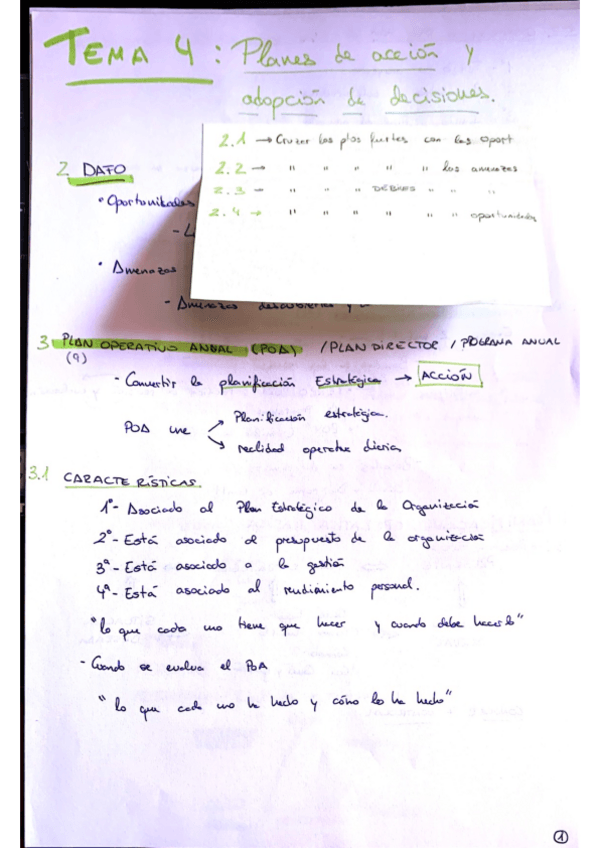 TEMA 4: Planes de acción y
adopción de decisiones.
2.1 → Cruzar los ptos fuertes con las oport
2.2 → " " " " " las amenazas
2.3 → " " " DÉBILES " " "
2.4 → " " " " " " oportunidades
2 DAFO
• Oportunidades
• Amenazas
- Amenazas descubiertas y
3 PLAN OPERATIVO ANUAL (POA) / PLAN DIRECTOR / PROGRAMA ANUAL
(9)
- Convertir la planificación Estratégica → ACCIÓN
POA une Planificación estratégica.
realidad operativa diaria
3.1 CARACTERÍSTICAS.
1º- Asociado al Plan Estratégico de la Organización
2º- Está asociado al presupuesto de la organización
3ª- Está asociado a la gestión
4ª- Está asociado al rendimiento personal.
"lo que cada uno tiene que hacer y cuando debe hacerlo"
- Cuando se evalua el POA
"lo que cada uno ha hecho y cómo lo ha hecho"
1